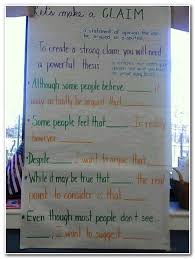 Let's make a CLAIM
a statement of opinion that can
be argued
To create a strong claim you will need
a powerful thesis
• Although some people believe ___, it
may actually be argued that ___.
• Some people feel that ___ is really
however ___.
• Despite ___, I want to argue that ___.
• While it may be true that ___ the real
point to consider is that ___.
• Even though most people don't see ___
I want to suggest ___.